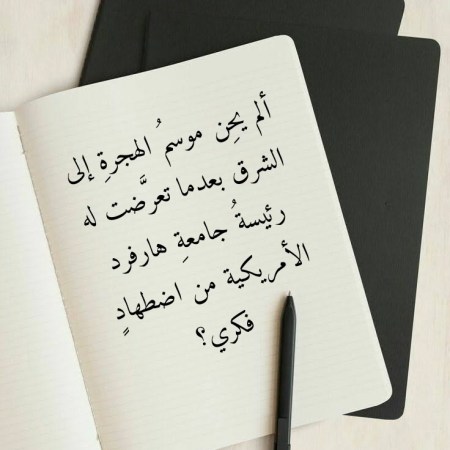 ألم يحِن موسمُ الهجرةِ إلى
الشرق بعدما تعرَّضت له
رئيسةُ جامعةِ هارفرد
الأمريكية من اضطهادٍ
فكري؟